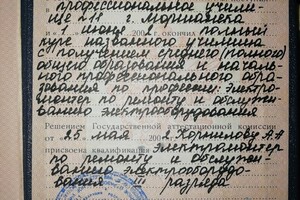 в профессиональное учили-
ще № 11 г. Моршанска
1 июня 200 г. окончил полный
курс названного училища
с получением среднего (полного)
общего образования и началь-
ного профессионального обра-
зования по профессии: Электро-
монтер по ремонту и обслужи-
ванию электрооборудования
Решением Государственной аттестационной комиссии
от мая г.
присвоена квалификация Электромонтер
по ремонту и обслужи-
ванию электрооборудо-
вания разряда